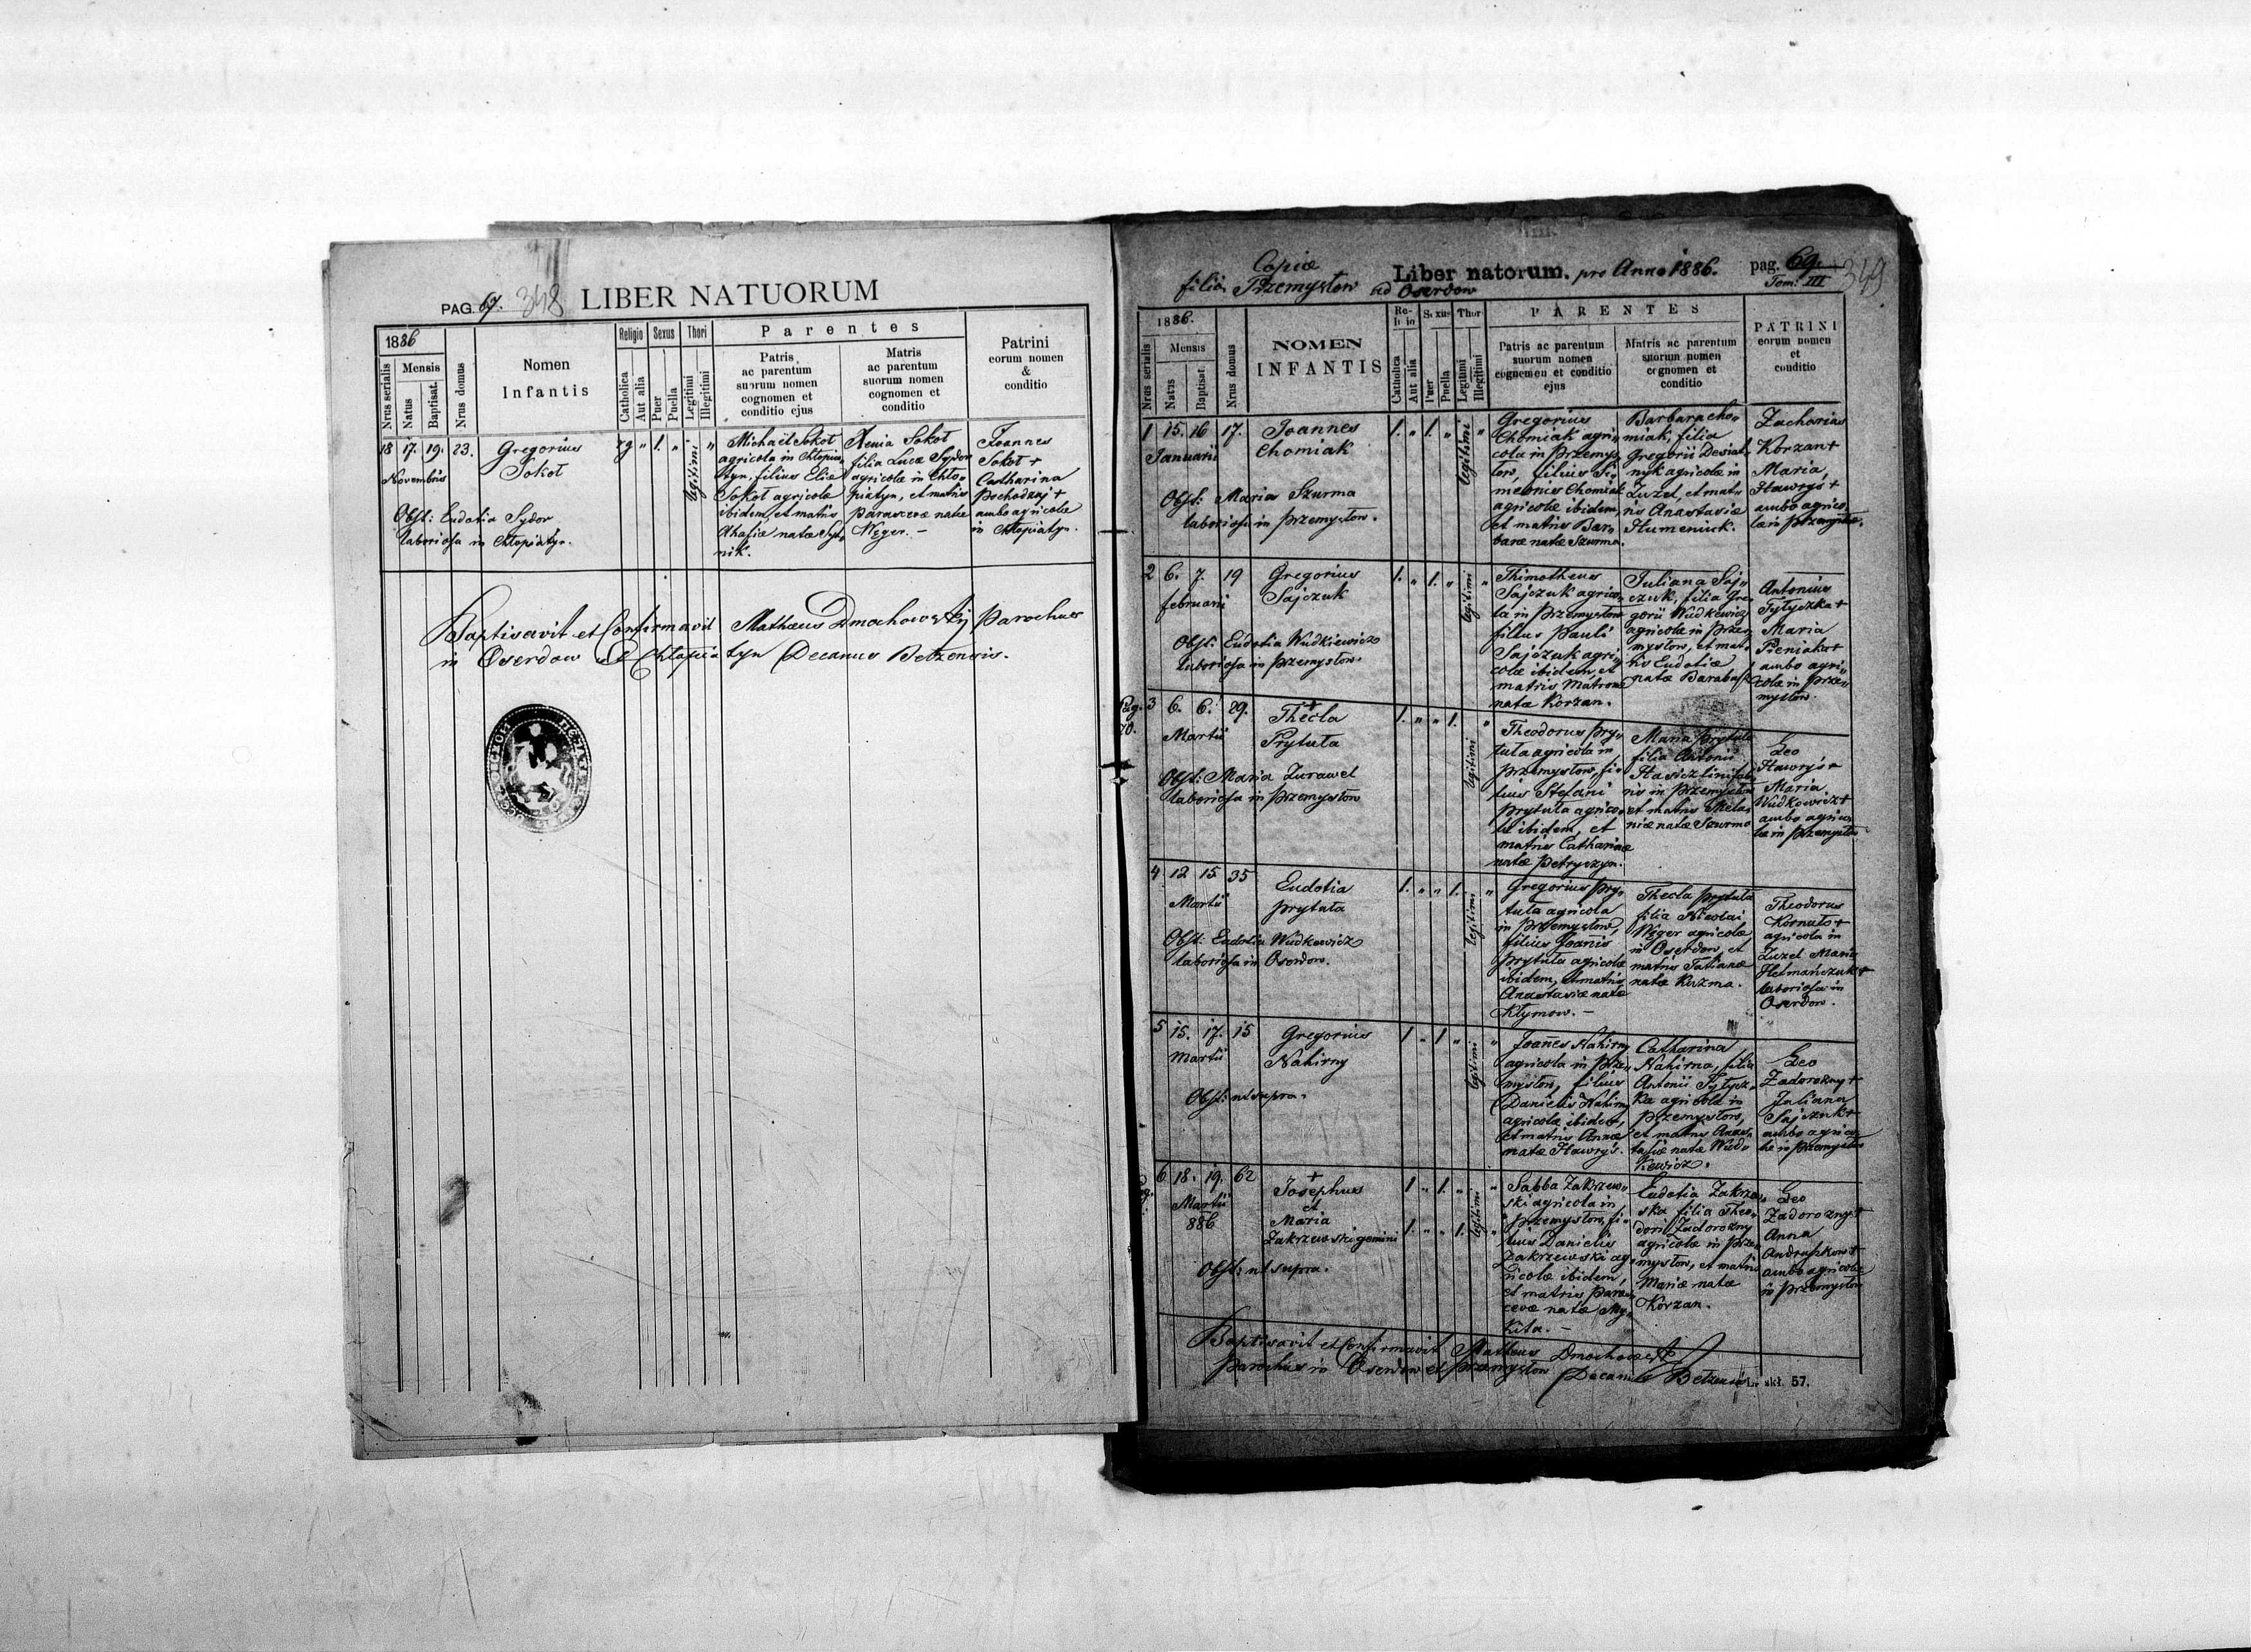 PAG. 67. 348 LIBER NATUORUM
1886
Nrus serialis
Mensis
Natus
Baptisat.
Nrus domus
Nomen
Infantis
Religio
Catholica
Aut alia
Sexus
Puer
Puella
Thori
Legitimi
Illegitimi
Parentes
Patris
ac parentum
suorum nomen
cognomen et
conditio ejus
Matris
ac parentum
suorum nomen
cognomen et
conditio
Patrini
eorum nomen
&
conditio
18 17. 19. 23.
Novembris
Gregorius
Sokoł
Obst: Eudotia Sydor
laboriosa in Chłopiatyn.
rg " 1. " legitimi "
Michael Sokoł
agricola in Chłopia-
tyn, filius Eliæ
Sokoł agricolæ
ibidem, et matris
Ahafiæ natæ Syt-
nik.
Xenia Sokoł
filia Lucæ Sydor
agricolæ in Chło-
piatyn, et matris
Parascevæ natæ
Węger. –
Joannes
Sokoł +
Catharina
Pochodzaj +
ambo agricolæ
in Chłopiatyn.
Baptisavit et Confirmavit Mathæus Dmochowskij Parochus
in Oserdow et Chłopiatyn Decanus Bełzensis.
Copiæ
filiæ Przemysłow ad Oserdow
Liber natorum. pro Anno 1886.
pag. 69.
Tom: III
349
1886.
Nrus serialis
Mensis
Natus
Baptisat.
Nrus domus
NOMEN
INFANTIS
Re-
ligio
Catholica
Aut alia
Sexus
Puer
Puella
Thori
Legitimi
Illegitimi
PARENTES
Patris ac parentum
suorum nomen
cognomen et conditio
ejus
Matris ac parentum
suorum nomen
cognomen et
conditio
PATRINI
eorum nomen
et
conditio
1 15. 16 17.
Januarii
Joannes
Chomiak
Obst: Maria Szurma
laboriosa in Przemysłow.
1. " 1. " legitimi "
Gregorius
Chomiak agri-
cola in Przemys-
łow, filius Si-
meonis Chomiak
agricolæ ibidem,
et matris Bar-
baræ natæ Szurma.
Barbara Cho-
miak, filia
Gregorii Desiat-
nyk agricolæ in
Żużel, et mat-
ris Anastasiæ
Humeniuk.
Zacharias
Korzan +
Maria
Hawryś +
ambo agrico-
læ in Przemysłow.
2 6. 7. 19
Februarii
Gregorius
Sajczuk
Obst: Eudotia Wudkiewicz
laboriosa in Przemysłow.
1. " 1. " legitimi "
Thimotheus
Sajczuk agrico-
la in Przemysłow
filius Pauli
Sajczuk agri-
colæ ibidem, et
matris Matronæ
natæ Korzan.
Juliana Saj-
czuk, filia Gre-
gorii Wudkewicz
agricolæ in Prze-
mysłow, et mat-
ris Eudotiæ
natæ Barabasz
Antonius
Tytyczka +
Maria
Pieniak +
ambo agri-
colæ in Prze-
mysłow.
Pag.
70.
3 6. 6. 29.
Martii
+
Thecla
Prytuła
Obst: Maria Żurawel
laboriosa in Przemysłow
1. " " 1. legitimi "
Theodorus Pry-
tuła agricola in
Przemysłow, fi-
lius Stefani
Prytuła agrico-
læ ibidem, et
matris Catharinæ
natæ Petryczyn.
Maria Prytuła
filia Antonii
in Przemysłow
et matris Mela-
niæ natæ Szurma
Leo
Hawryś +
Maria
Wudkowicz +
ambo agrico-
læ in Przemysłow
4 12 15 35
Martii
Eudotia
Prytuła
Obst: Eudotia Wudkewicz
laboriosa in Oserdow.
1. " " 1. legitimi "
Gregorius Pry-
tuła agricola
in Przemysłow,
filius Joannis
Prytuła agricolæ
ibidem, et matris
Anastasiæ natæ
Kłymow. –
Thecla Prytuła
filia Nicolai
Węger agricolæ
in Oserdow, et
matris Tatianæ
natæ Kuzma.
Theodorus
Kornało +
agricola in
Żużel Maria
Hetmańczuk +
laboriosa in
Oserdow.
5 15. 17. 15
Martii
Gregorius
Nahirny
Obst: ut supra.
1 " 1 " legitimi "
Joannes Nahirny
agricola in Prze-
mysłow, filius
Danielis Nahirny
agricolæ ibidem,
et matris Annæ
natæ Hawryś.
Catharina
Nahirna, filia
Antonii Tytycz-
ka agricolæ in
Przemysłow,
et matris Anas-
tasiæ natæ Wud-
kewicz.
Leo
Zadorozny +
Juliana
Sajczuk +
ambo agrico-
læ in Przemysłow
6 18. 19. 62
Martii
886
+
Josephus
et
Maria
Zakrzewski gemini
Obst: ut supra.
1 " 1. " legitimi "
1. " " 1. "
Sabba Zakrzew-
ski agricola in
Przemysłow, fi-
lius Danielis
Zakrzewski ag-
ricolæ ibidem,
et matris Paras-
cevæ natæ My-
kita. –
Eudotia Zakrzew-
ska filia Theo-
dori Zadorozny
agricolæ in Prze-
mysłow, et matris
Mariæ natæ
Korzan.
Leo
Zadorozny +
Anna
Andruszkow +
ambo agricolæ
in Przemysłow
Baptisavit et Confirmavit Matheus Dmochowskij
Parochus in Oserdow et Przemysłow Decanus Bełzensis
skł. 57.